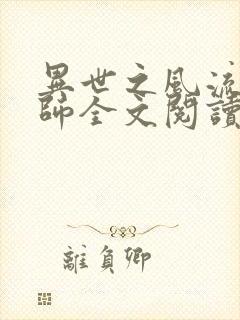 異世之風流
師全文閱讀
離負卿